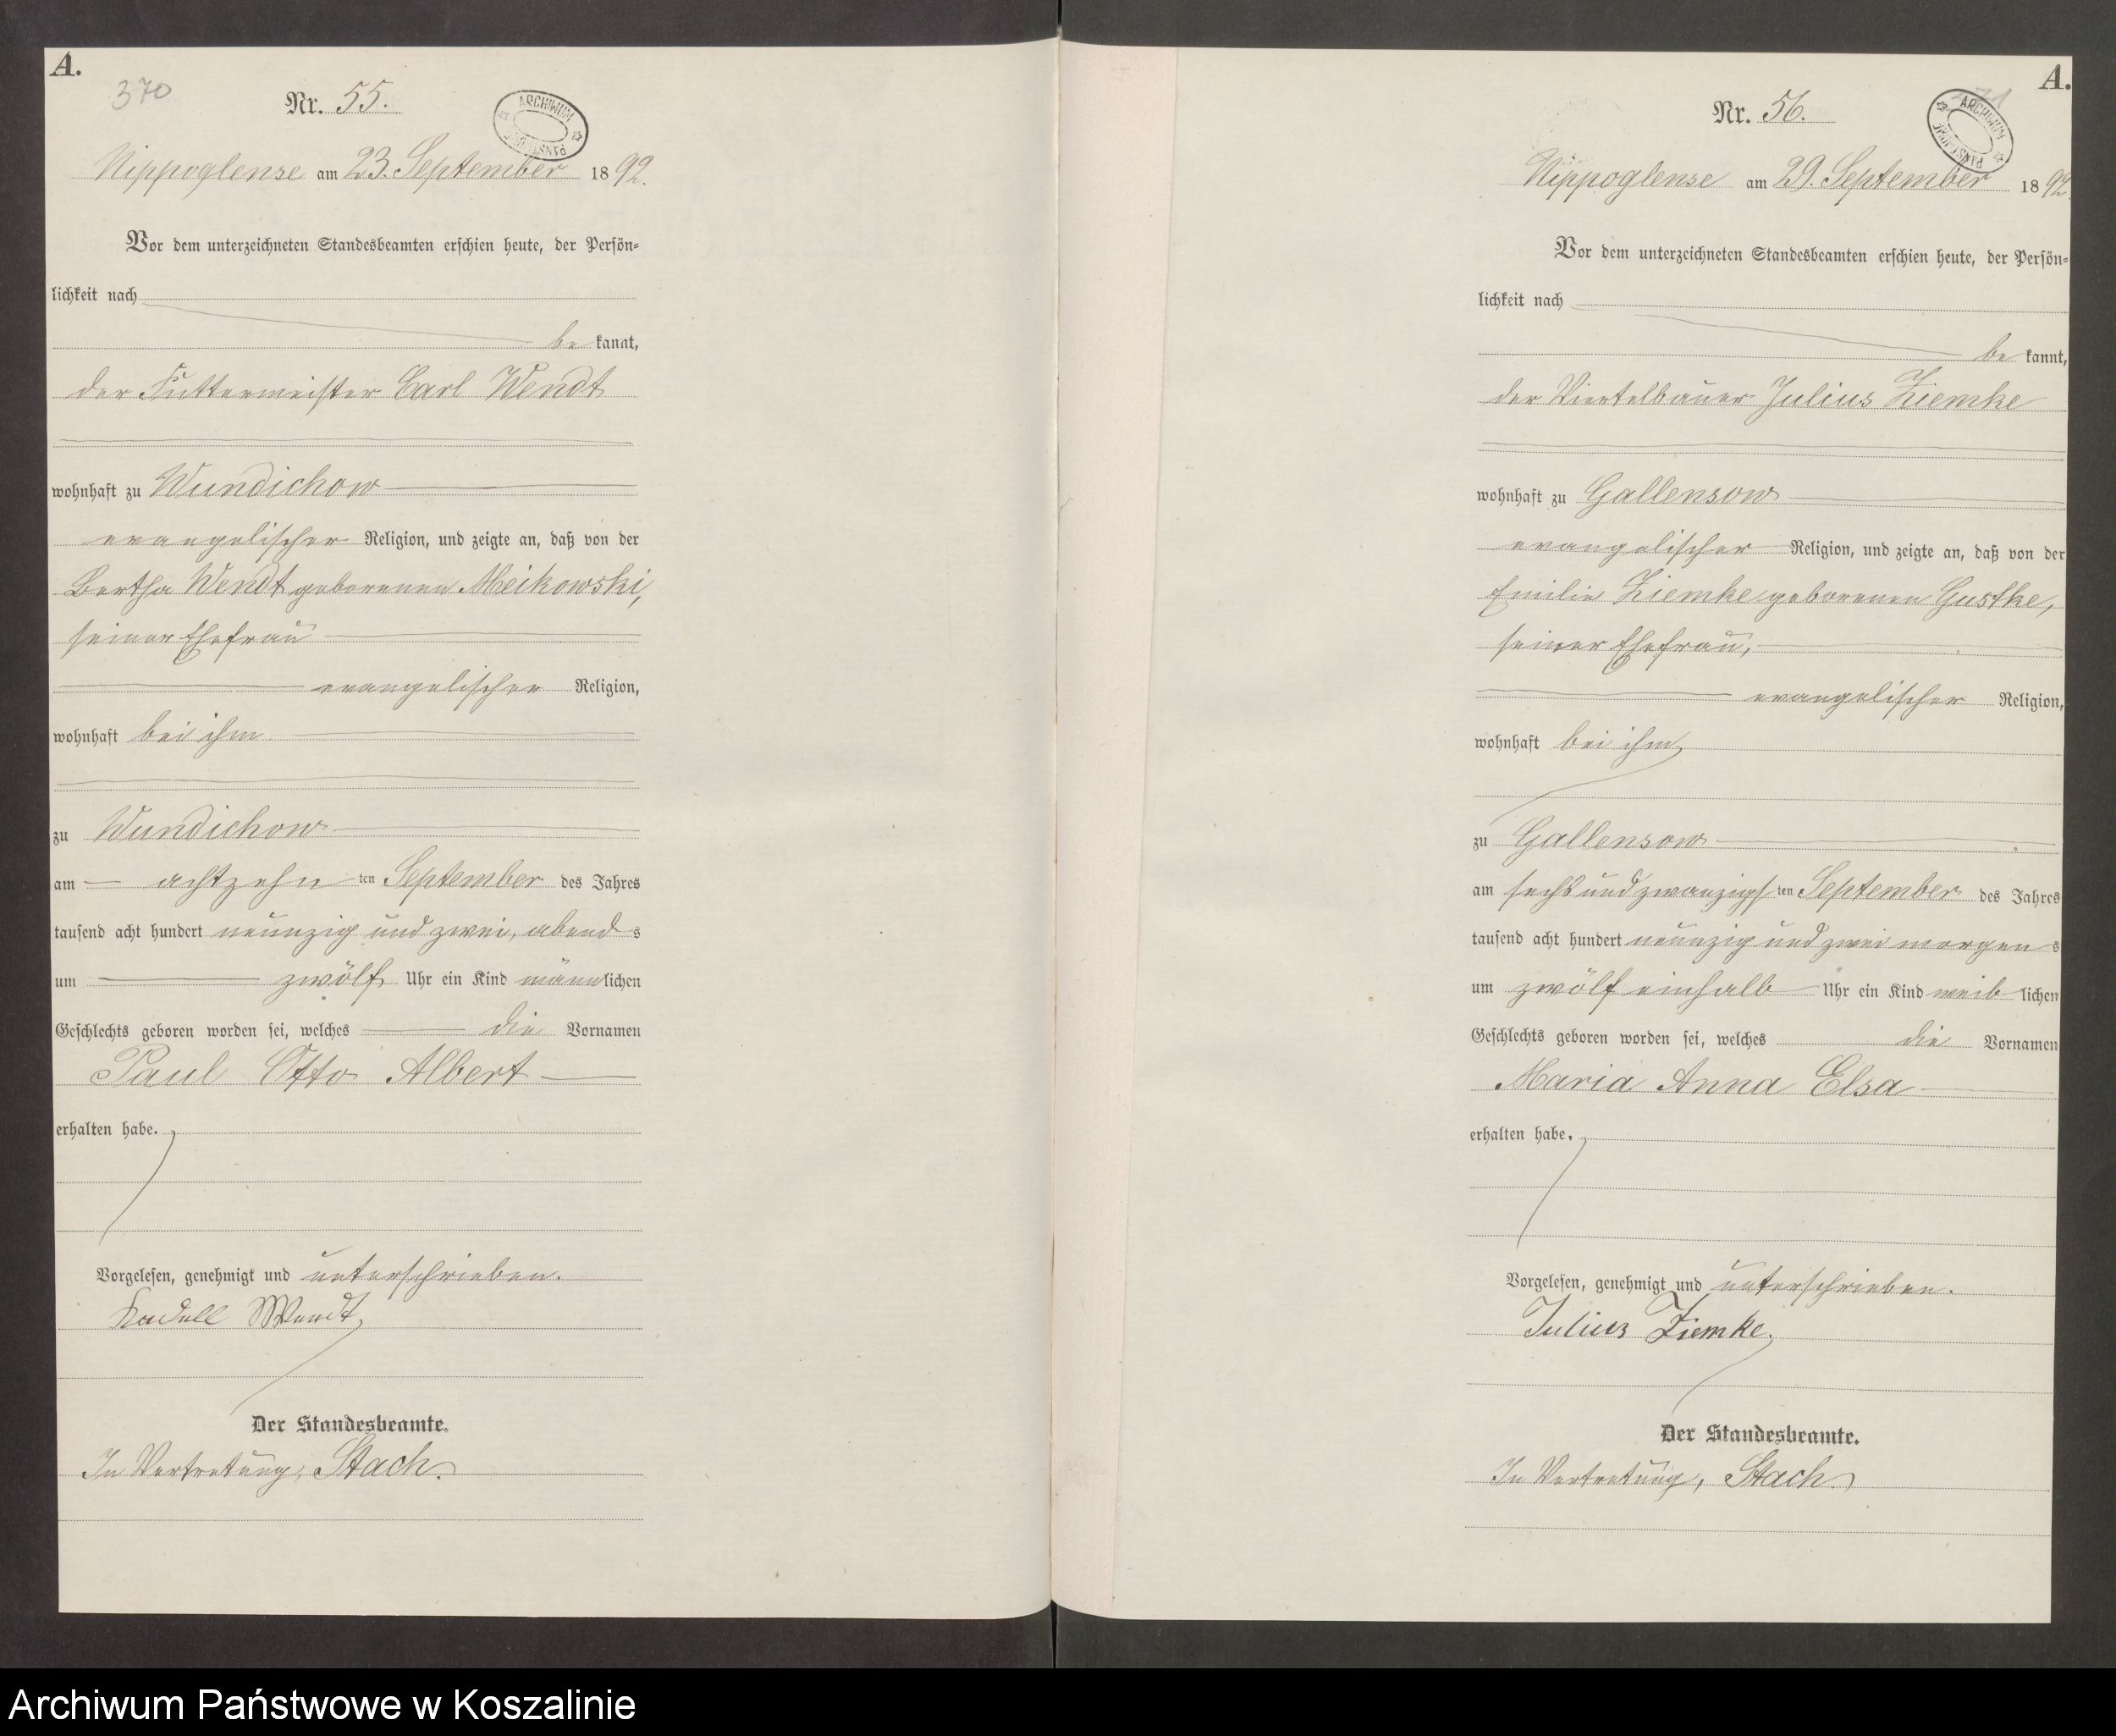 A.
370
Nr. 55.
ARCHIWUM PAŃSTWOWE
Nippoglense am 23. September 1892.
Vor dem unterzeichneten Standesbeamten erschien heute, der Persön-
lichkeit nach
be kannt,
der Futtermeister Carl Wendt
wohnhaft zu Wundichow
evangelischer Religion, und zeigte an, daß von der
Bertha Wendt geborenen Meikowski,
seiner Ehefrau
evangelischer Religion,
wohnhaft bei ihm
zu Wundichow
am achtzehn ten September des Jahres
tausend acht hundert neunzig und zwei, abend s
um zwölf Uhr ein Kind männlichen
Geschlechts geboren worden sei, welches die Vornamen
Paul Otto Albert
erhalten habe.
Vorgelesen, genehmigt und unterschrieben.
Wendt
Der Standesbeamte.
In Vertretung, Stach.
A.
371
Nr. 56.
ARCHIWUM PAŃSTWOWE
Nippoglense am 29. September 1892
Vor dem unterzeichneten Standesbeamten erschien heute, der Persön-
lichkeit nach
be kannt,
der Viertelbauer Julius Ziemke
wohnhaft zu Gallensow
evangelischer Religion, und zeigte an, daß von der
Emilie Ziemke geborenen Gustke,
seiner Ehefrau,
evangelischer Religion,
wohnhaft bei ihm
zu Gallensow
am sechs und zwanzigs ten September des Jahres
tausend acht hundert neunzig und zwei morgen s
um zwölf einhalb Uhr ein Kind weib lichen
Geschlechts geboren worden sei, welches die Vornamen
Maria Anna Elsa
erhalten habe.
Vorgelesen, genehmigt und unterschrieben.
Julius Ziemke
Der Standesbeamte.
In Vertretung, Stach
Archiwum Państwowe w Koszalinie